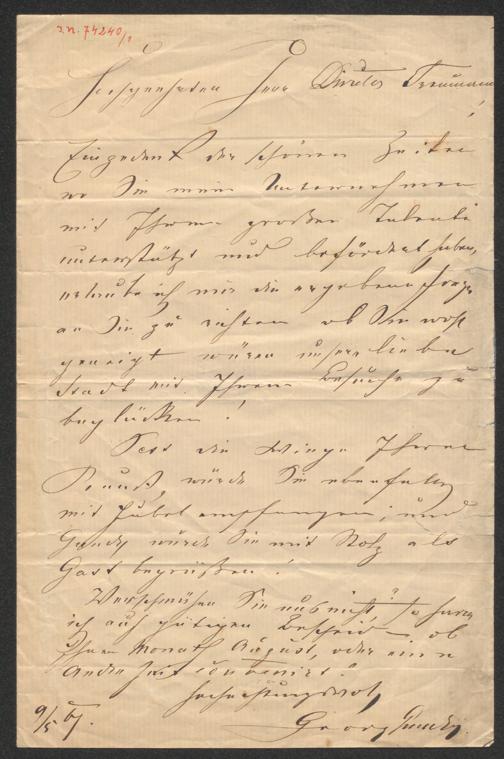 I.N. 74240/1
Hochgeehrter Herr Direktor Treumann
!
Eingedenk der schönen Zeiten
wo Sie mein Unternehmen
mit Ihrem großen Talente
unterstützt und befördert haben,
erlaube ich mir die ergebene Frage
an Sie zu richten ob Sie wohl
geneigt wären unsere liebe
Stadt mit Ihrem Besuche zu
beglücken!
die Ihrer
würde Sie ebenfalls
mit Jubel empfangen; und
würde Sie mit Stolz als
Gast begrüßen!
Verschmähen Sie uns nicht, so harre
ich auf gütigen Bescheid ob
Ihnen Monath August, oder eine
andre Zeit convenirt.
Hochachtungsvoll
9/5 67. Georg